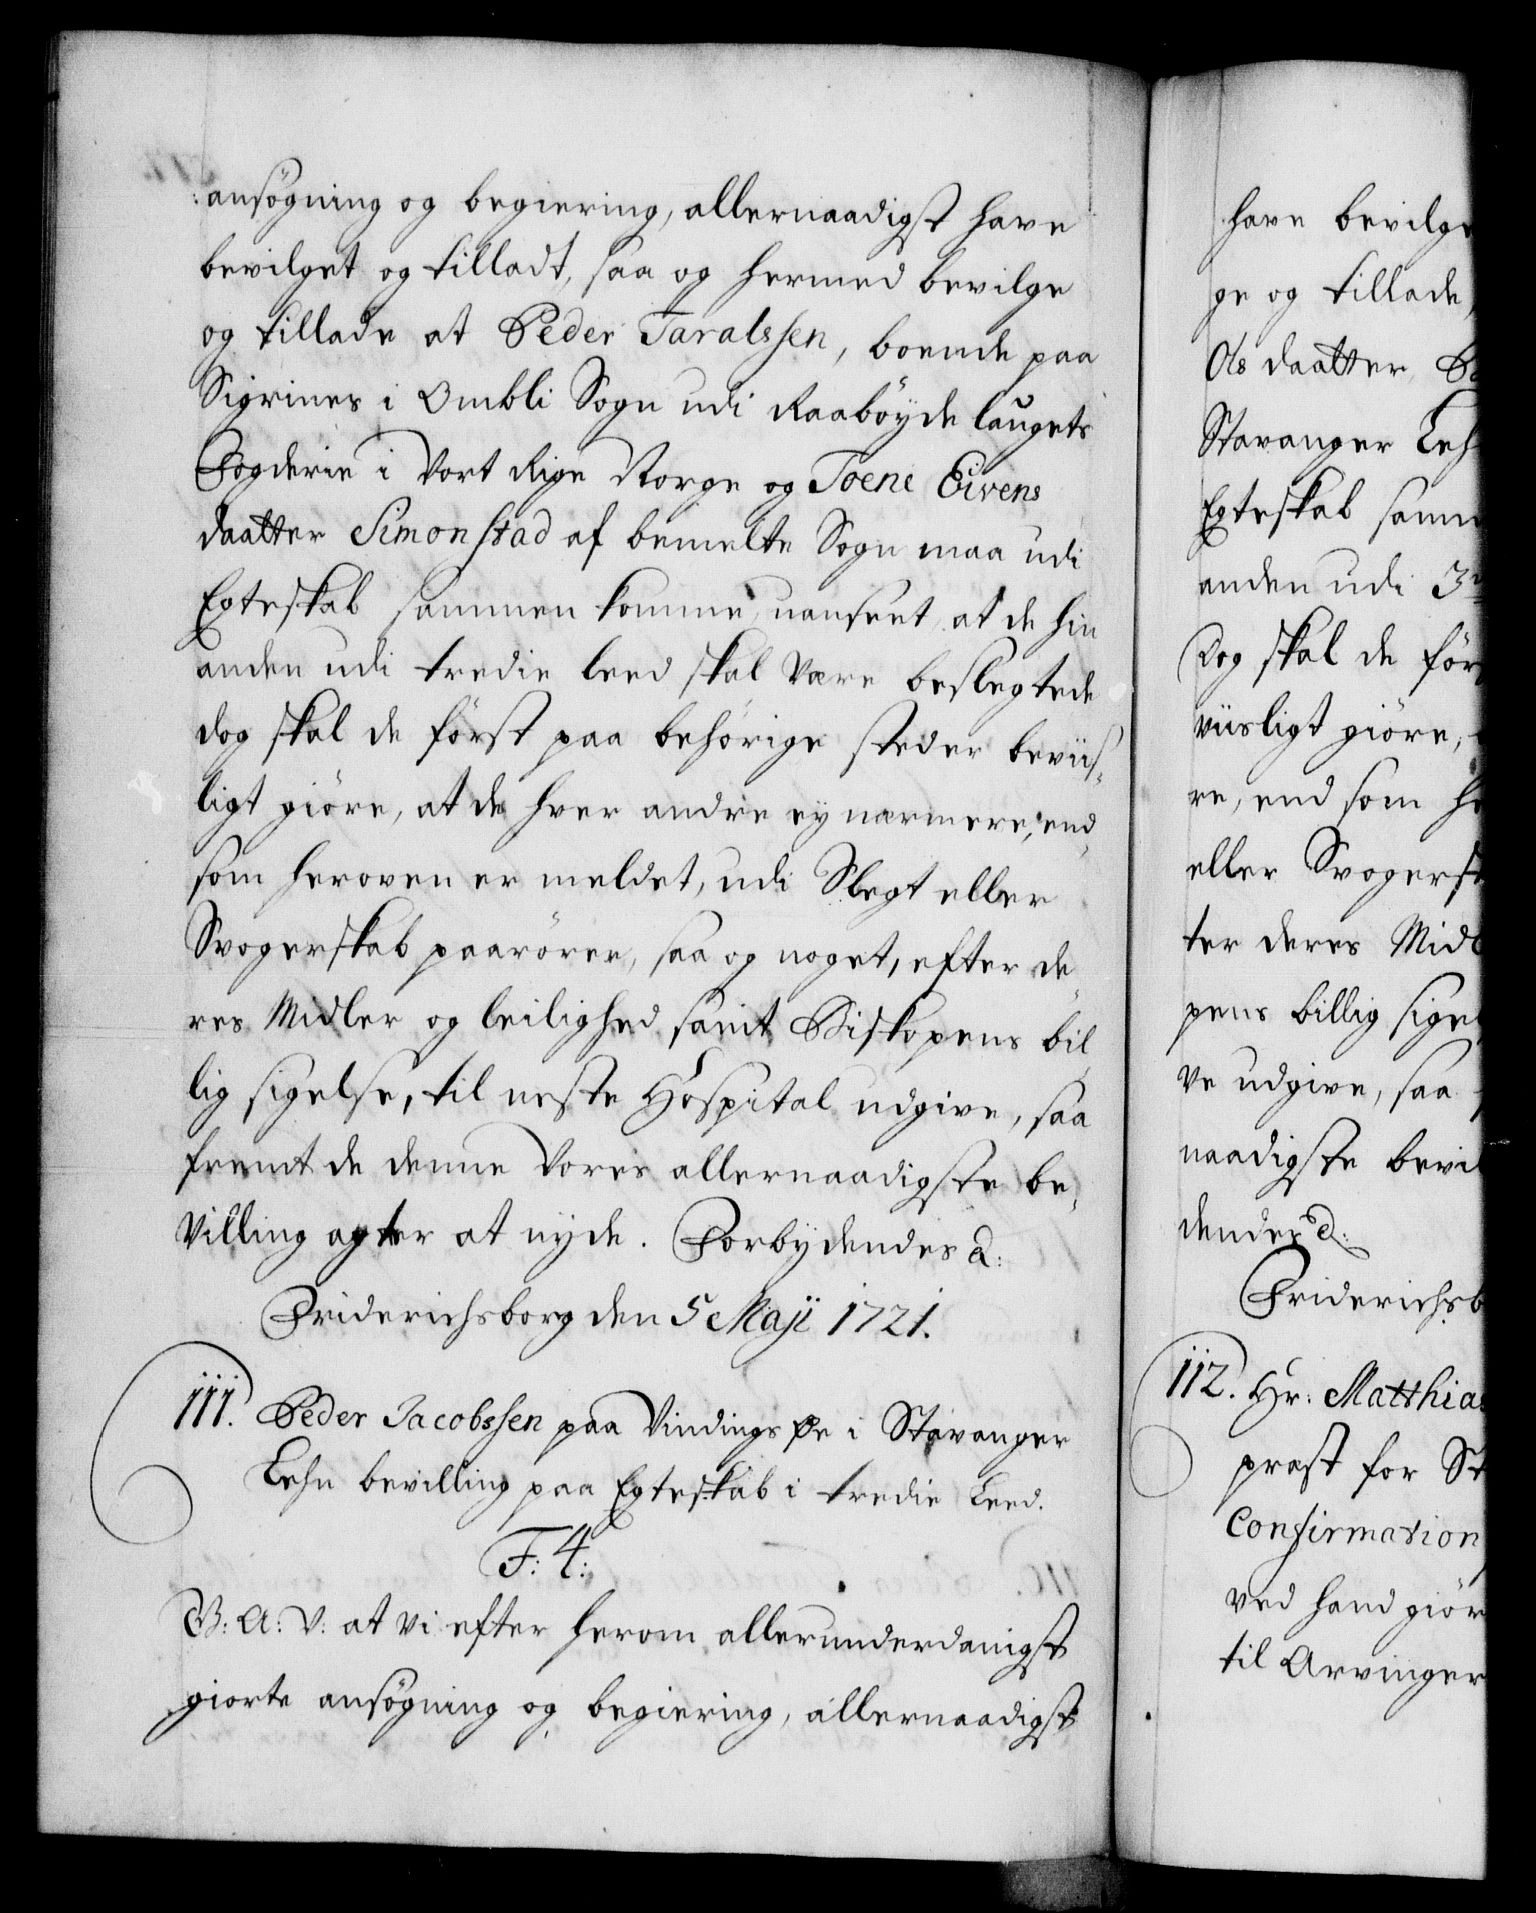 ansøgning og begiering, allernaadigst have
bevilget og tilladt, saa og hermed bevilge
og tillade at Peder Taralssen, boende paa
Sigrines i Ombli Sogn udi Raabøyde laugets
Fogderie i Vort Rige Norge og Toene Eivens
daatter Simonstad af bemelte Sogn maa udi
Egteskab sammen komme, uanseet at de hin
anden udi tredie leed skal være beslegtede
dog skal de først paa behørige steder beviis-
ligt giøre, at de hver andre ey nærmere, end
som heroven er meldet, udi Slegt eller
Svogerskab paarører, saa og noget, efter de-
res Midler og leilighed samt Biskopens bil-
lig sigelse, til neste Hospital udgive, saa
fremt de denne Vores allernaadigste be-
villing agter at nyde. Forbydendes &:
Friderichsborg den 5 Maji 1721.
111. Peder Jacobssen paa Vindingsøe i Stavanger
Lehn bevilling paa Egteskab i tredie Leed.
F: 4:
G: A: V: at vi efter herom allerunderdanigst
giorte ansøgning og begiering, allernaadigst
have bevilge
ge og tillade,
Ols daatter
Stavanger Leh
Egteskab samm
anden udi 3
Dog skal de før
viisligt giøre,
re, end som he
eller Svogersk
ter deres Midl
pens billig sigel
ve udgive, saa
naadigste bevil
dendes &:
Friderichsb
112. Hr: Matthias
præst for St
Confirmation
ved hand giør
til Arvinger